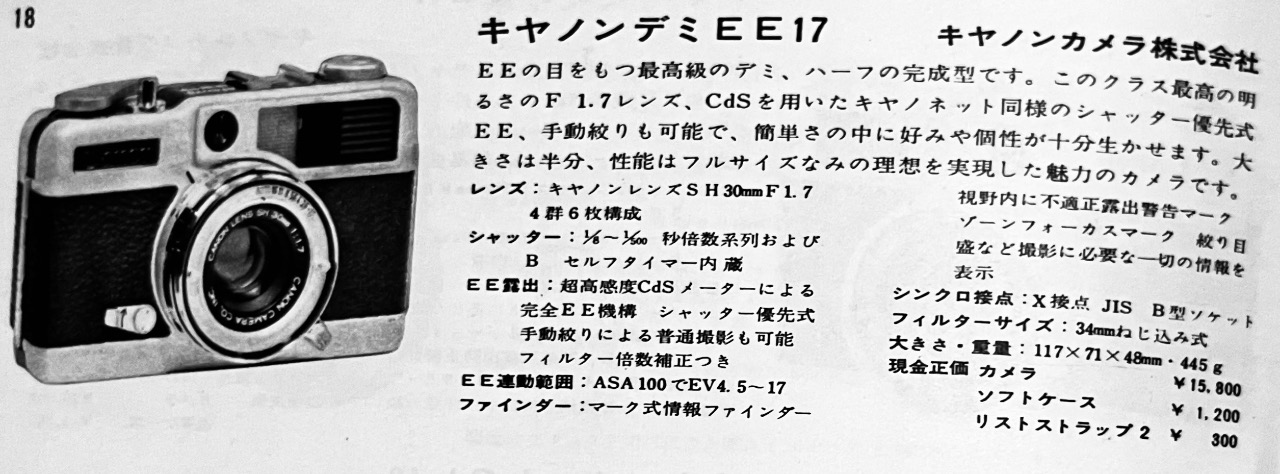 18
キヤノンデミEE17
キヤノンカメラ株式会社
EEの目をもつ最高級のデミ、ハーフの完成型です。このクラス最高の明
るさのF 1.7レンズ、CdSを用いたキヤノネット同様のシャッター優先式
EE、手動絞りも可能で、簡単さの中に好みや個性が十分生かせます。大
きさは半分、性能はフルサイズなみの理想を実現した魅力のカメラです。
レンズ：キヤノンレンズSH30mmF1.7
4群6枚構成
シャッター：1/8～1/500 秒倍数系列および
B セルフタイマー内蔵
EE露出：超高感度CdSメーターによる
完全EE機構 シャッター優先式
手動絞りによる普通撮影も可能
フィルター倍数補正つき
EE連動範囲：ASA100でEV4.5～17
ファインダー：マーク式情報ファインダー
視野内に不適正露出警告マーク
ゾーンフォーカスマーク 絞り目
盛など撮影に必要な一切の情報を
表示
シンクロ接点：X接点 JIS B型ソケット
フィルターサイズ：34mmねじ込み式
大きさ・重量：117×71×48mm・445g
現金正価 カメラ ¥15,800
ソフトケース ¥ 1,200
リストストラップ2 ¥ 300
CANON LENS SH 30mm 1:1.7
CANON CAMERA CO., INC.